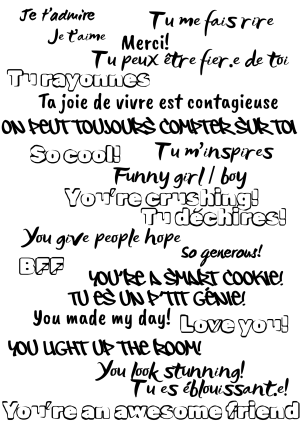 Je t'admire
Tu me fais rire
Je t'aime
Merci!
Tu peux être fier.e de toi
Tu rayonnes
Ta joie de vivre est contagieuse
ON PEUT TOUJOURS COMPTER SUR TOI
So cool!
Tu m'inspires
Funny girl / boy
You're crushing!
Tu déchires!
You give people hope
So generous!
BFF
YOU'RE A SMART COOKIE!
TU ES UN P'TIT GÉNIE!
You made my day!
Love you!
YOU LIGHT UP THE ROOM!
You look stunning!
Tu es éblouissant.e!
You're an awesome friend